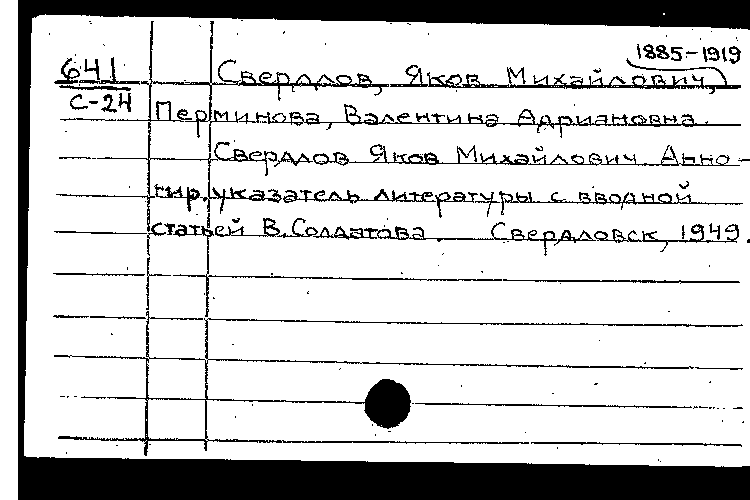 1885-1919
641 Свердлов, Яков Михайлович,
С-24
Перминова, Валентина Адриановна.
Свердлов Яков Михайлович. Анно-
тир. указатель литературы с вводной
статьей В. Солдатова. Свердловск, 1949.